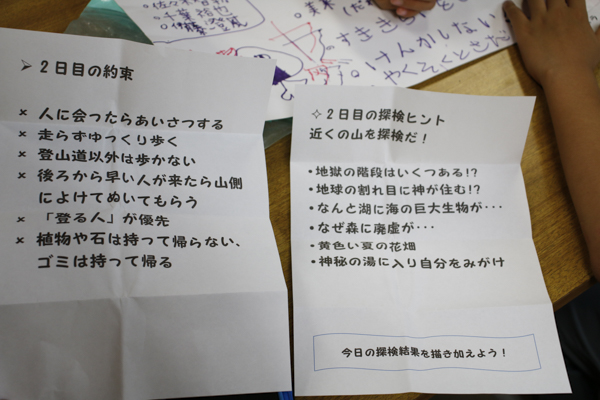 ➢ 2日目の約束
× 人に会ったらあいさつする
× 走らずゆっくり歩く
× 登山道以外は歩かない
× 後ろから早い人が来たら山側
によけてぬいてもらう
× 「登る人」が優先
× 植物や石は持って帰らない、
ゴミは持って帰る
✧ 2日目の探検ヒント
近くの山を探検だ！
・地獄の階段はいくつある!?
・地球の割れ目に神が住む!?
・なんと湖に海の巨大生物が・・・
・なぜ森に廃虚が・・・
・黄色い夏の花畑
・神秘の湯に入り自分をみがけ
今日の探検結果を描き加えよう！
けんかしない